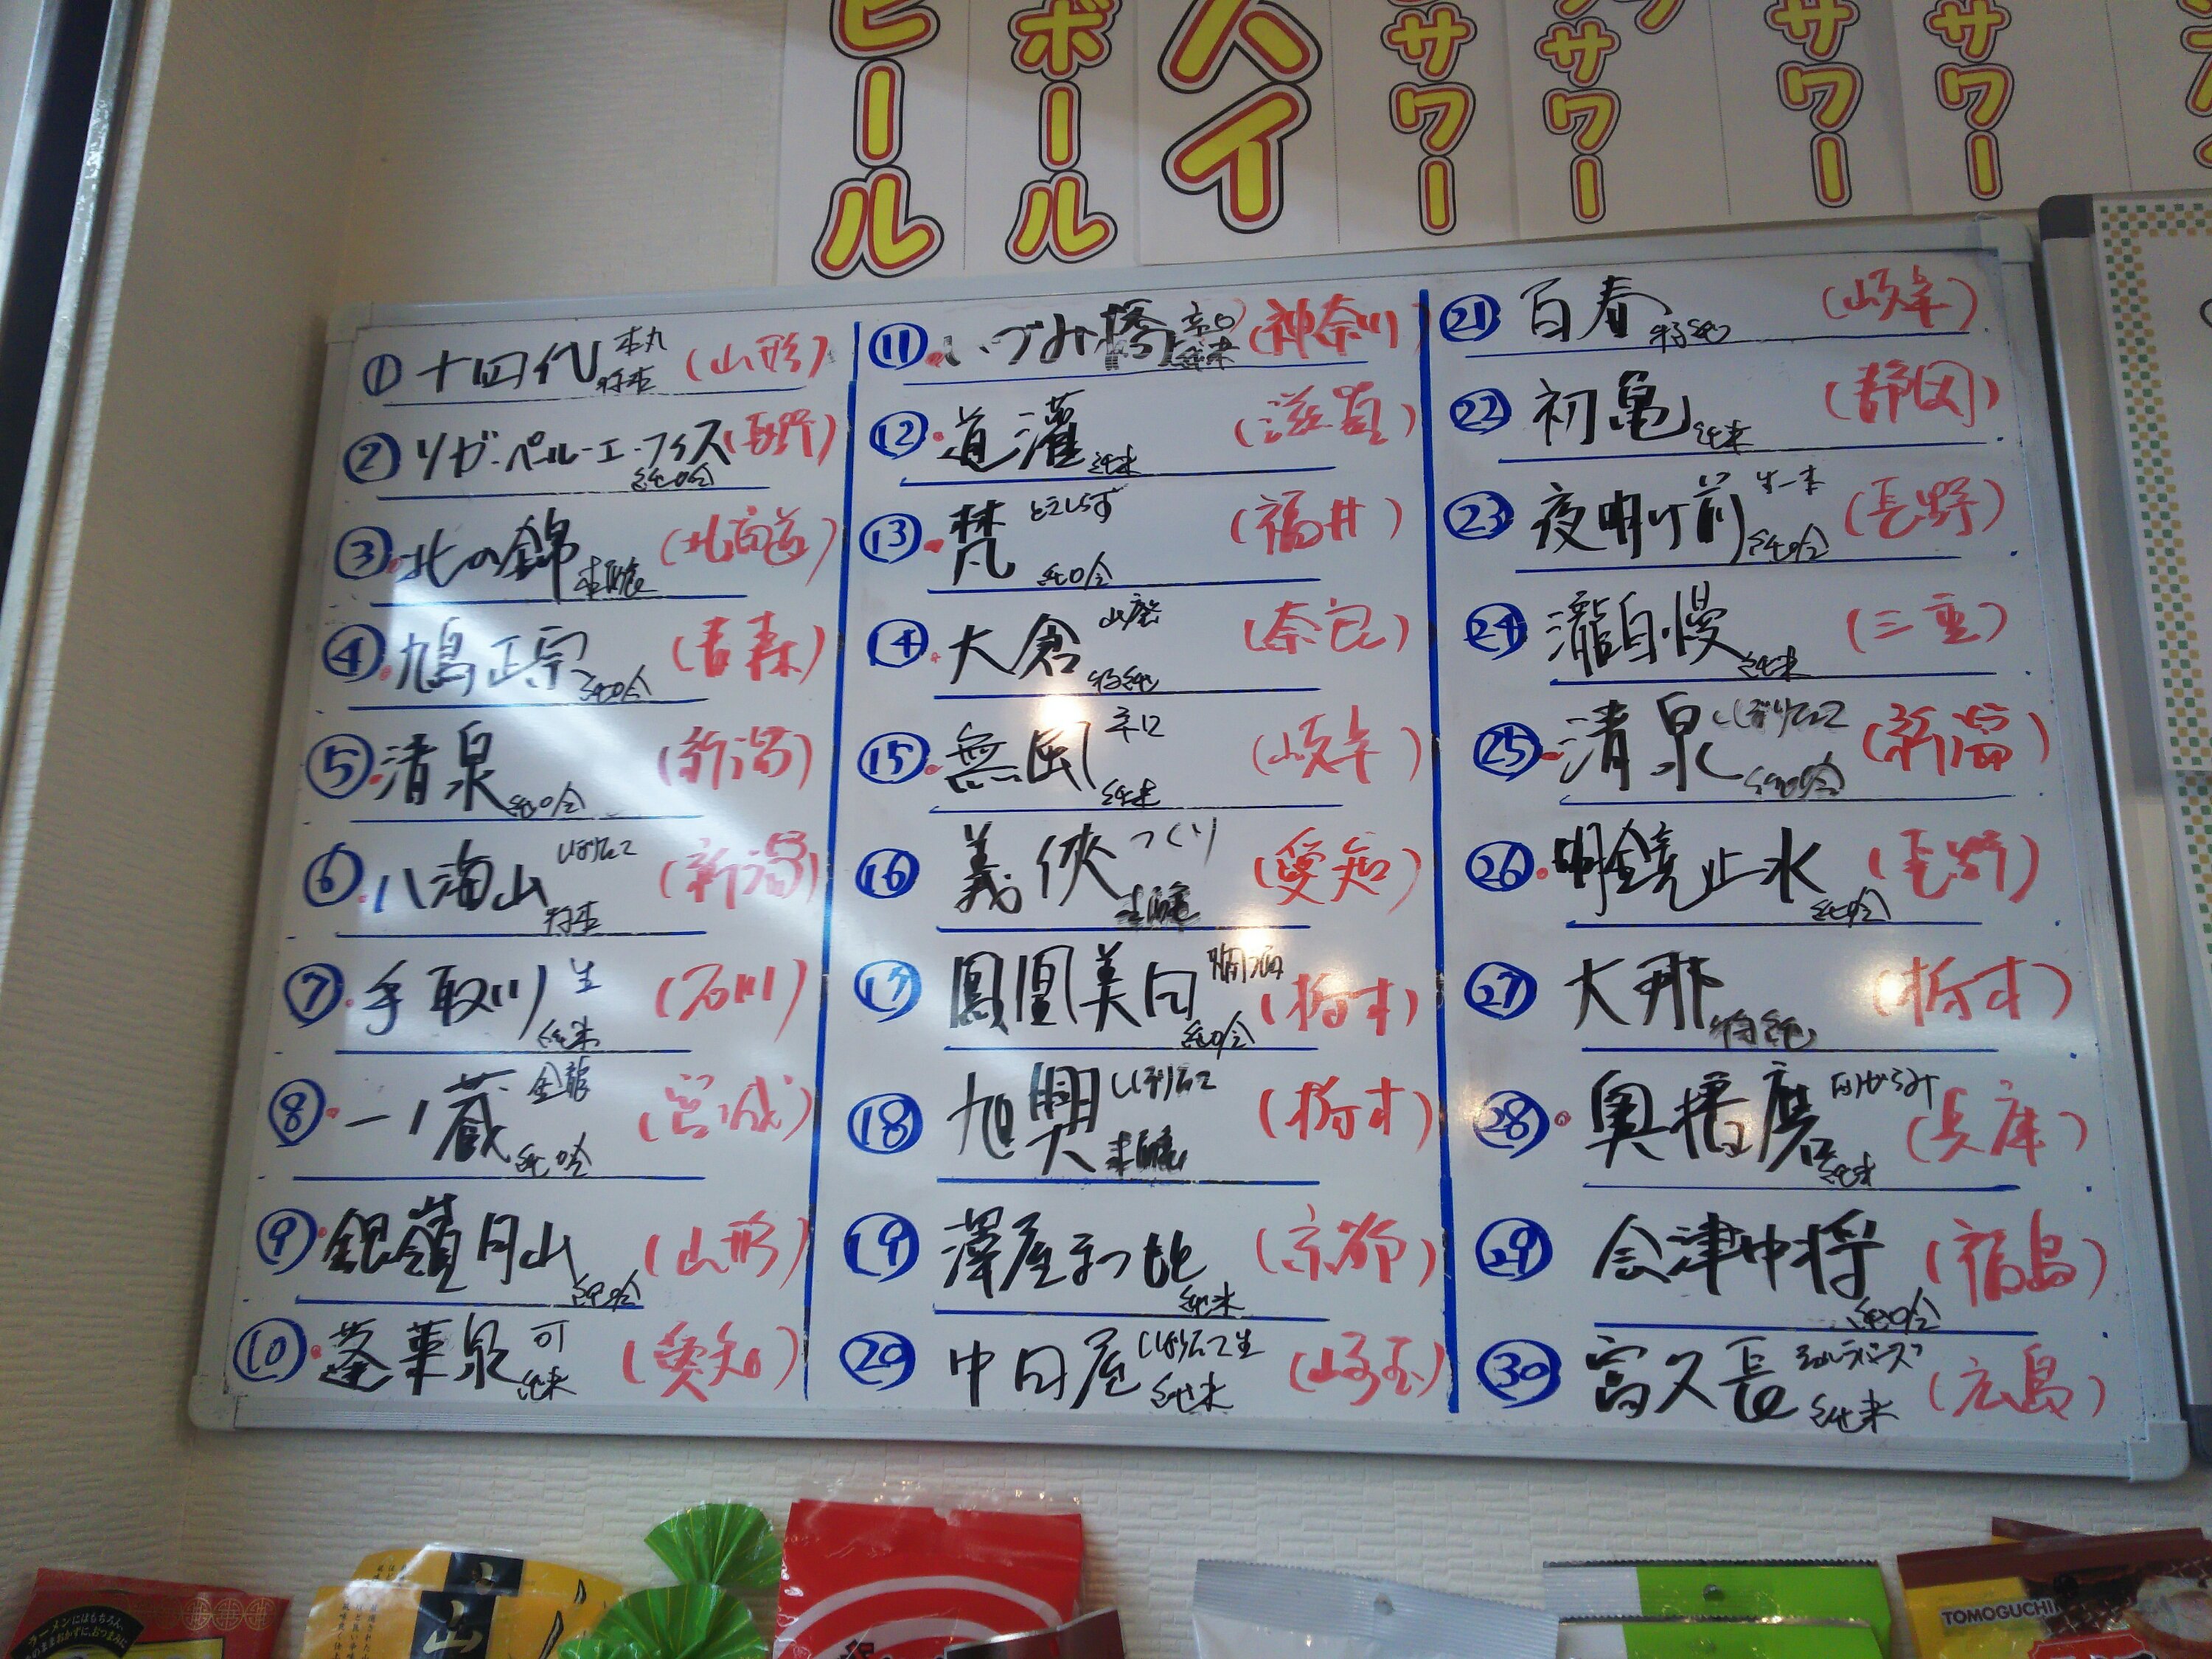 ビール
ボール
ハイ
サワー
サワー
サワー
サワー
① 十四代 本丸 特本 (山形)
② リガ・ペール・エ・フィス 純吟 (長野)
③ 北の錦 本醸 (北海道)
④ 鳩正宗 純吟 (青森)
⑤ 清泉 純吟 (新潟)
⑥ 八海山 しぼりたて 特本 (新潟)
⑦ 手取川 生 純米 (石川)
⑧ 一ノ蔵 金龍 純吟 (宮城)
⑨ 銀嶺月山 純吟 (山形)
⑩ 蓬莱泉 可 純米 (愛知)
⑪ いづみ橋 辛口 純米 (神奈川)
⑫ 道灌 純米 (滋賀)
⑬ 梵 ときしらず 純吟 (福井)
⑭ 大倉 山廃 特純 (奈良)
⑮ 無風 辛口 純米 (岐阜)
⑯ 義侠 つくり 本醸 (愛知)
⑰ 鳳凰美田 燗酒 純吟 (栃木)
⑱ 旭興 しぼりたて 本醸 (栃木)
⑲ 澤屋まつもと 純米 (京都)
⑳ 中田屋 しぼりたて生 純米 (埼玉)
㉑ 百春 特純 (岐阜)
㉒ 初亀 純米 (静岡)
㉓ 夜明け前 生一本 純吟 (長野)
㉔ 瀧自慢 純米 (三重)
㉕ 清泉 しぼりたて 純吟 (新潟)
㉖ 明鏡止水 純吟 (長野)
㉗ 大那 特純 (栃木)
㉘ 奥播磨 おりがらみ 純米 (兵庫)
㉙ 会津中将 純吟 (福島)
㉚ 富久長 純米 (広島)
ラーメンにはもちろん、
山
TOMOGUCHI